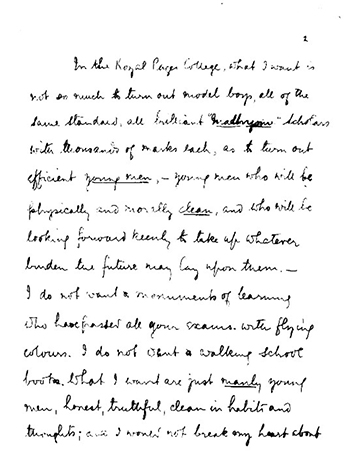 2
In the Royal Pages College, what I want is
not so much to turn out model boys, all of the
same standard, all brilliant "madhyom" scholars
with thousands of marks each, as to turn out
efficient young men, – young men who will be
physically and morally clean, and who will be
looking forward keenly to take up whatever
burden the future may lay upon them. –
I do not want a monuments of learning
who have passed all your exams. with flying
colours. I do not want a walking school
book. What I want are just manly young
men, honest, truthful, clean in habits and
thoughts; and I would not break my heart about